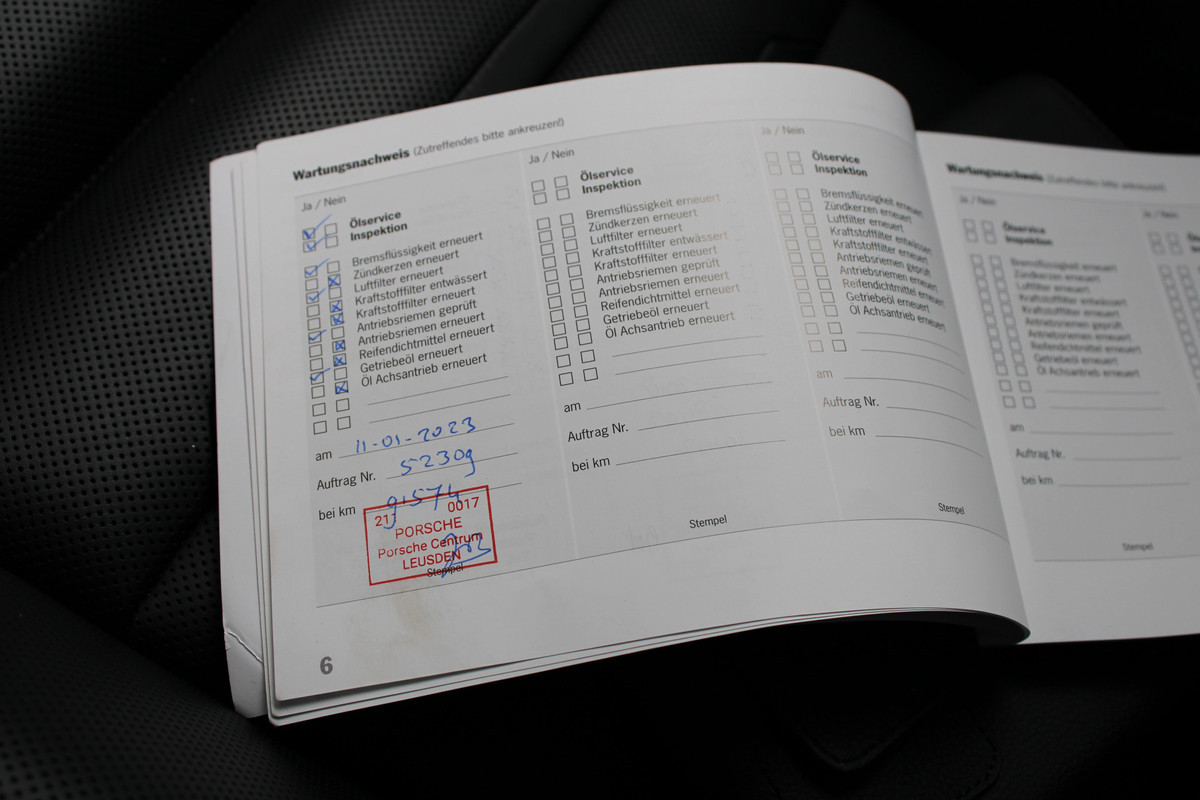 Wartungsnachweis (Zutreffendes bitte ankreuzen!)
Ja / Nein
Ölservice
Inspektion
Bremsflüssigkeit erneuert
Zündkerzen erneuert
Luftfilter erneuert
Kraftstofffilter entwässert
Kraftstofffilter erneuert
Antriebsriemen geprüft
Antriebsriemen erneuert
Reifendichtmittel erneuert
Getriebeöl erneuert
Öl Achsantrieb erneuert
am 11-01-2023
Auftrag Nr. 52309
bei km 91574
0017
PORSCHE
Porsche Centrum
LEUSDEN
Stempel
6
Ja / Nein
Ölservice
Inspektion
Bremsflüssigkeit erneuert
Zündkerzen erneuert
Luftfilter erneuert
Kraftstofffilter entwässert
Kraftstofffilter erneuert
Antriebsriemen geprüft
Antriebsriemen erneuert
Reifendichtmittel erneuert
Getriebeöl erneuert
Öl Achsantrieb erneuert
am
Auftrag Nr.
bei km
Stempel
Ja / Nein
Ölservice
Inspektion
Bremsflüssigkeit erneuert
Zündkerzen erneuert
Luftfilter erneuert
Kraftstofffilter entwässert
Kraftstofffilter erneuert
Antriebsriemen geprüft
Antriebsriemen erneuert
Reifendichtmittel erneuert
Getriebeöl erneuert
Öl Achsantrieb erneuert
am
Auftrag Nr.
bei km
Stempel
Wartungsnachweis (Zutreffendes bitte ankreuzen!)
Ja / Nein
Ölservice
Inspektion
Bremsflüssigkeit erneuert
Zündkerzen erneuert
Luftfilter erneuert
Kraftstofffilter entwässert
Kraftstofffilter erneuert
Antriebsriemen geprüft
Antriebsriemen erneuert
Reifendichtmittel erneuert
Getriebeöl erneuert
Öl Achsantrieb erneuert
am
Auftrag Nr.
bei km
Stempel
Ja / Nein